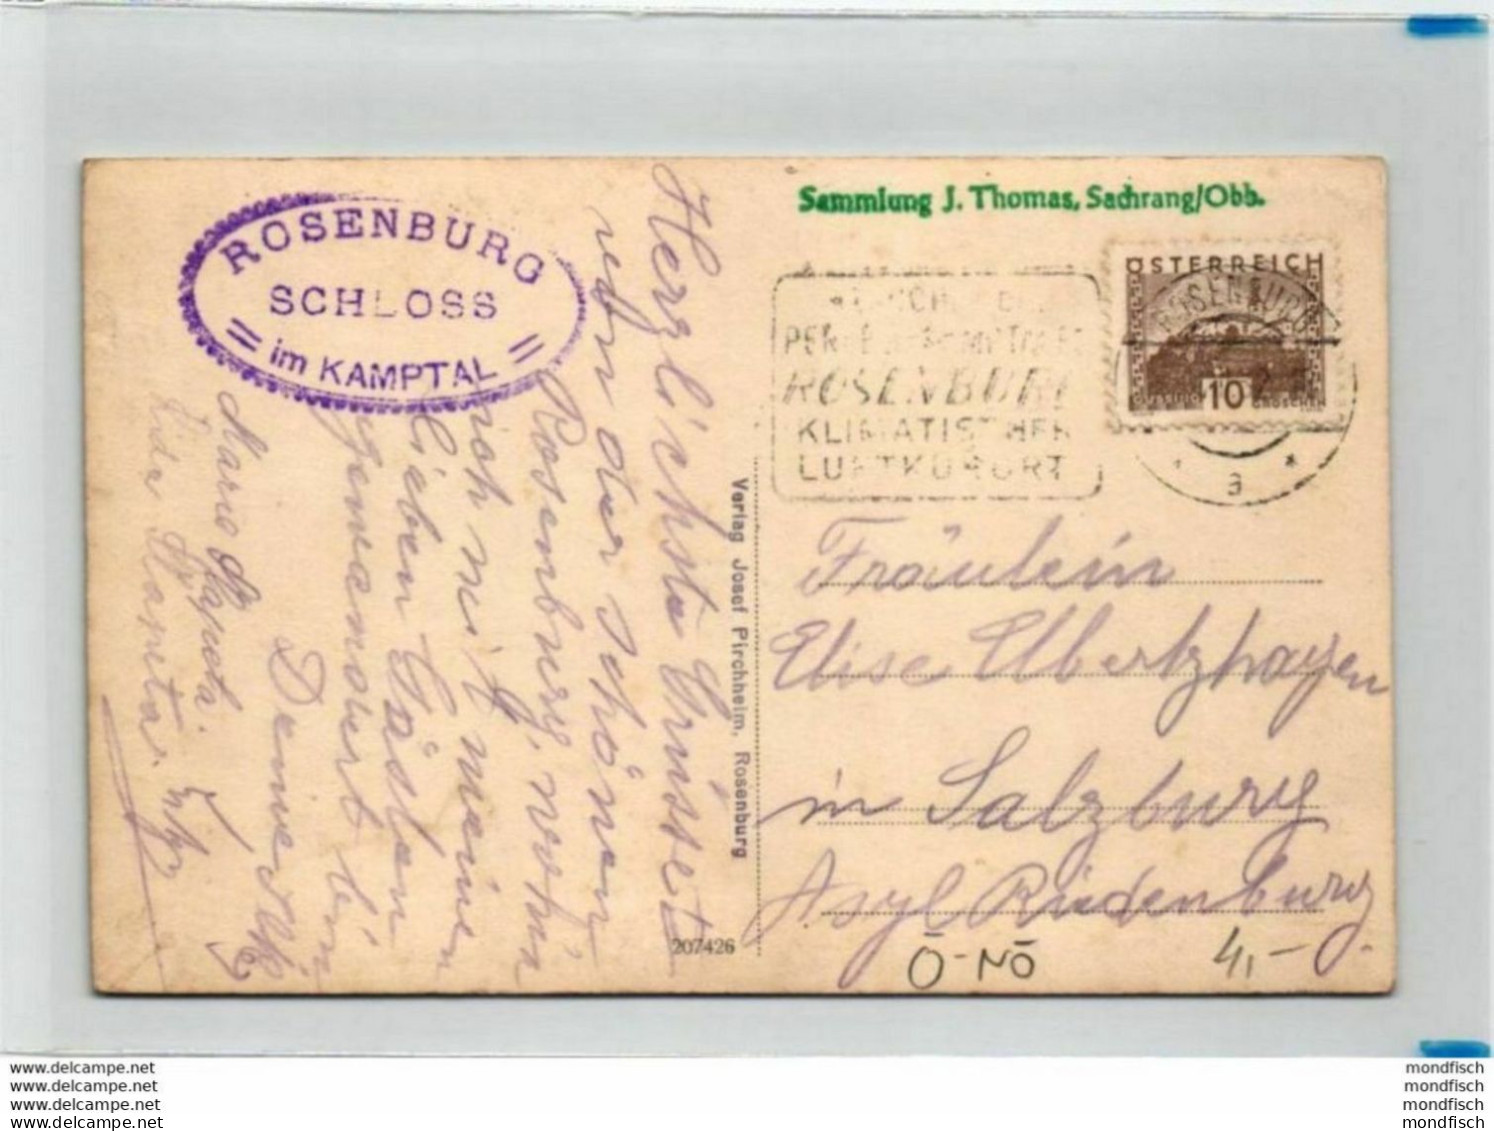 ROSENBURG
SCHLOSS
im KAMPTAL
Herzlichste Grüsse
von der schönen
Rosenburg, wohin
ich mit meinen
lieben Gästen
gewandert bin
Deine
Mario Kapeta.
Lida Kapeta.
Verlag Josef Pirchheim, Rosenburg
207426
Sammlung J. Thomas, Sachrang/Obb.
ÖSTERREICH
10
GROSCHEN
ROSENBURG
a
ROSENBURG
KLIMATISCHER
LUFTKURORT
Fräulein
Elise
in Salzburg
Asyl Riedenburg.
Ö-NÖ
4,-
www.delcampe.net
www.delcampe.net
www.delcampe.net
www.delcampe.net
mondfisch
mondfisch
mondfisch
mondfisch